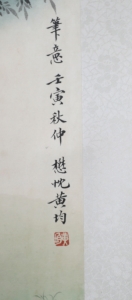 筆意 壬寅秋仲 懋忱黄均